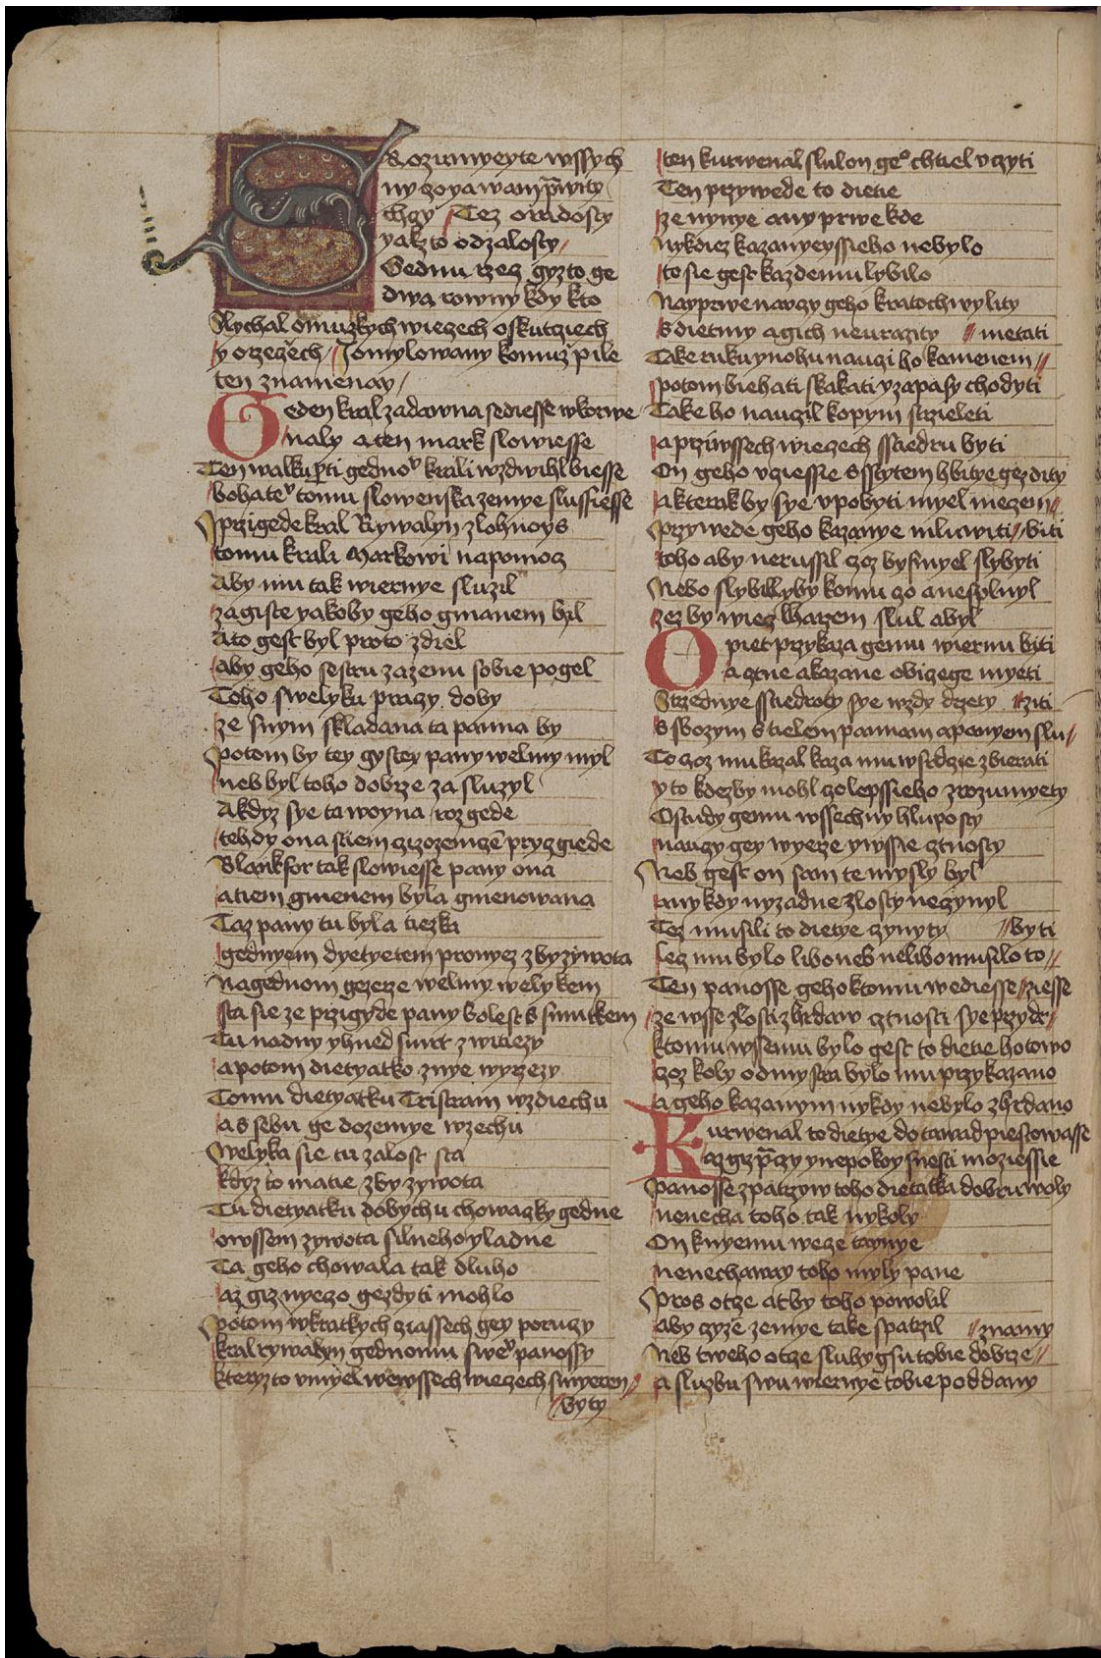 Srozumyeyte wssych
ny czoya wam p̄wity
chczy Tez oradosty
yakzto odzalosty
Sedmu rzecz gyzto ge
dwa rowny kdy kto
Slychal omuzkych wieczech oskutciech
y orzeczech Iomylowany komuz pile
ten znamenay
Geden kral zadawna sediesse wkorwe
naly aten mark slowiesse
Ten walku p̱ti gednoͮ krali wzdwihl biesse
bohateͮ tomu slowenska zemye slussiesse
Przigede kral Rywalyn zlohnoys
tomu krali Markowi napomoc
Aby mu tak wiernye sluzil
zagiste yakoby geho gmanem bil
Ato gest byl proto zdiel
aby geho sestru zazenu sobie pogel
Toho swelyku praczy doby
ze snym skladana ta panna by
Potom by tey gystey pany welmy myl
neb byl toho dobrze zasluzyl
Akdyz sye ta woyna rozgede
tehdy ona stiem czizozemczē pryczgiede
Blankfor tak slowiesse pany ona
atiem gmenem byla gmenowana
Taz pany tu byla tiezka
gednyem dyetyetem pronyez zby zywota
Nagednom gezerze welmy welykem
sta sie ze przigyde pany bolest s smutkem
Tu nadny yhned smrt zwitiezy
apotom dietyatko znye wyrzezy
Tomu dietyatku Tristram wzdiechu
as sebu ge dozemye wzechu
Welyka sie tu zalost sta
kdyz to matie zby zywota
Tu dietyatku dobychu chowaczky gedne
owssem zywota silneho yladne
Ta geho chowala tak dluho
az giz nyeczo gezdyti mohlo
Potom wkratkych cziassech gey poruczy
kral rywalyn gednomu sweͮ panossy
kteryzto vmyel wewssech wieczech smyeren
byty
ten kurwenal slul on geͦ chtiel vczyti
Ten przywede to dietie
ze nynye any prwe kde
nykdiez kazanyeyssieho nebylo
to sie gest kazdemu lybilo
Nayprwe naczy geho kratochwylity
s dietmy agich neurazity metati
Take ruku ynohu nauczi ho kamenem
potom biehati skakati yzapasy chodyti
Take ho nauczil kopym strzieleti
aprziwssech wieczech sstiedru byti
On geho vcziessie s sstytem hbitye gezdity
akterak by sye vpobyti myel meczem
Przywede geho kazanye mluwiti biti
toho aby nerussil czoz by smyel slybyti
Nebo slybil lyby komu czo anesplnyl
zez by wiecz lharzem slul abyl
Opiet przykaza gemu wiernu biti
a cztne akazane obiczege myeti
Strzednye sstiedroty sye wzdy drzety ziti
s sbozym s tielem pannam apanyem slu
Toczoz mu kazal kaza mu wsrdcze zbierati
yto kdezby mohl czo lepssieho zrozumyety
Ostudy gemu wssechny hluposty
nauczy gey wyerze ywssie cztnosty
Neb gest on sam te mysly byl
any kdy nyzadne zlosty neczynyl
Tez musili to dietye czynyty byti
lecz mu bylo libo neb nelibo musilo to
Ten panosse geho ktomu wediesse ziesse
ze wsse zlosti zhrdaw cztnosti sye przydr
ktomu wssemu bylo gest to dietie hotowo
czoz koly odmystra bylo mu przykazano
ageho kazanym nykdy nebylo zhrdano
Kurwenal to dietye dotawad piestowasse
az giz p̄czy ynepokoy snesti moziessie
Panosse zpatrzyw toho dietatka dobru woly
nenecha toho tak nykoly
On knyemu wecze taynye
nenechaway toho myly pane
Pros otcze atby toho powolil
aby czyzē zemye take spatrzil znamy
Neb tweho otcze sluhy gsu tobie dobrze
a sluzbu swu wiernye tobie poddany